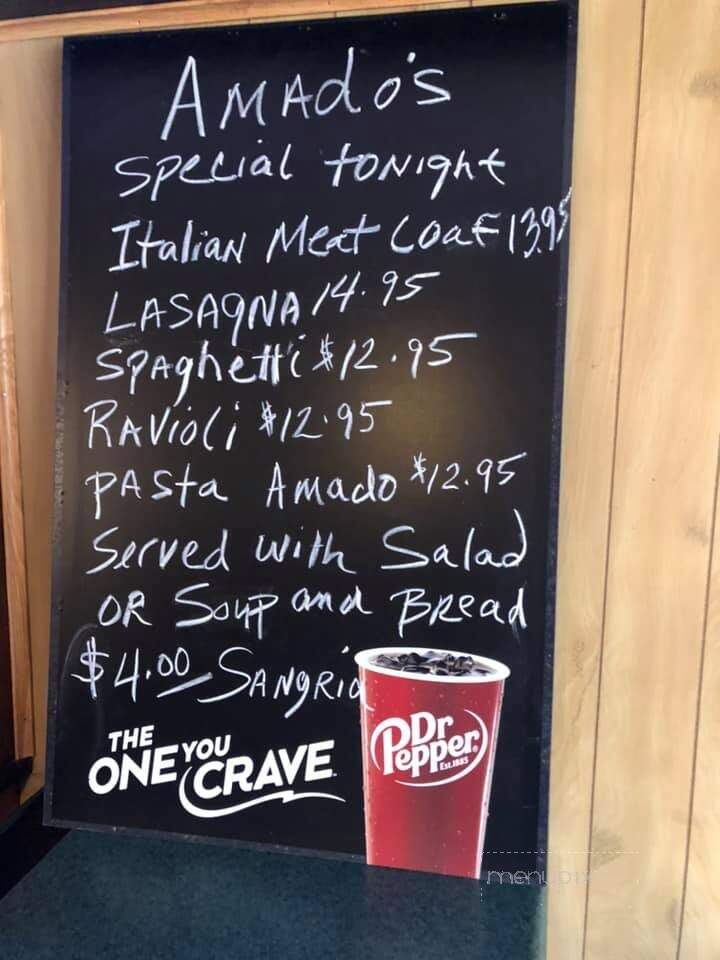 AMAdo's
Special tonight
Italian Meat Loaf 13.95
LASAgNA 14.95
SPAghetti $12.95
RAVioli $12.95
PASta Amado $12.95
Served with Salad
OR Soup and BRead
$4.00 SANgRia
THE
ONE YOU
CRAVE
Dr
Pepper
Est. 1885
menupix